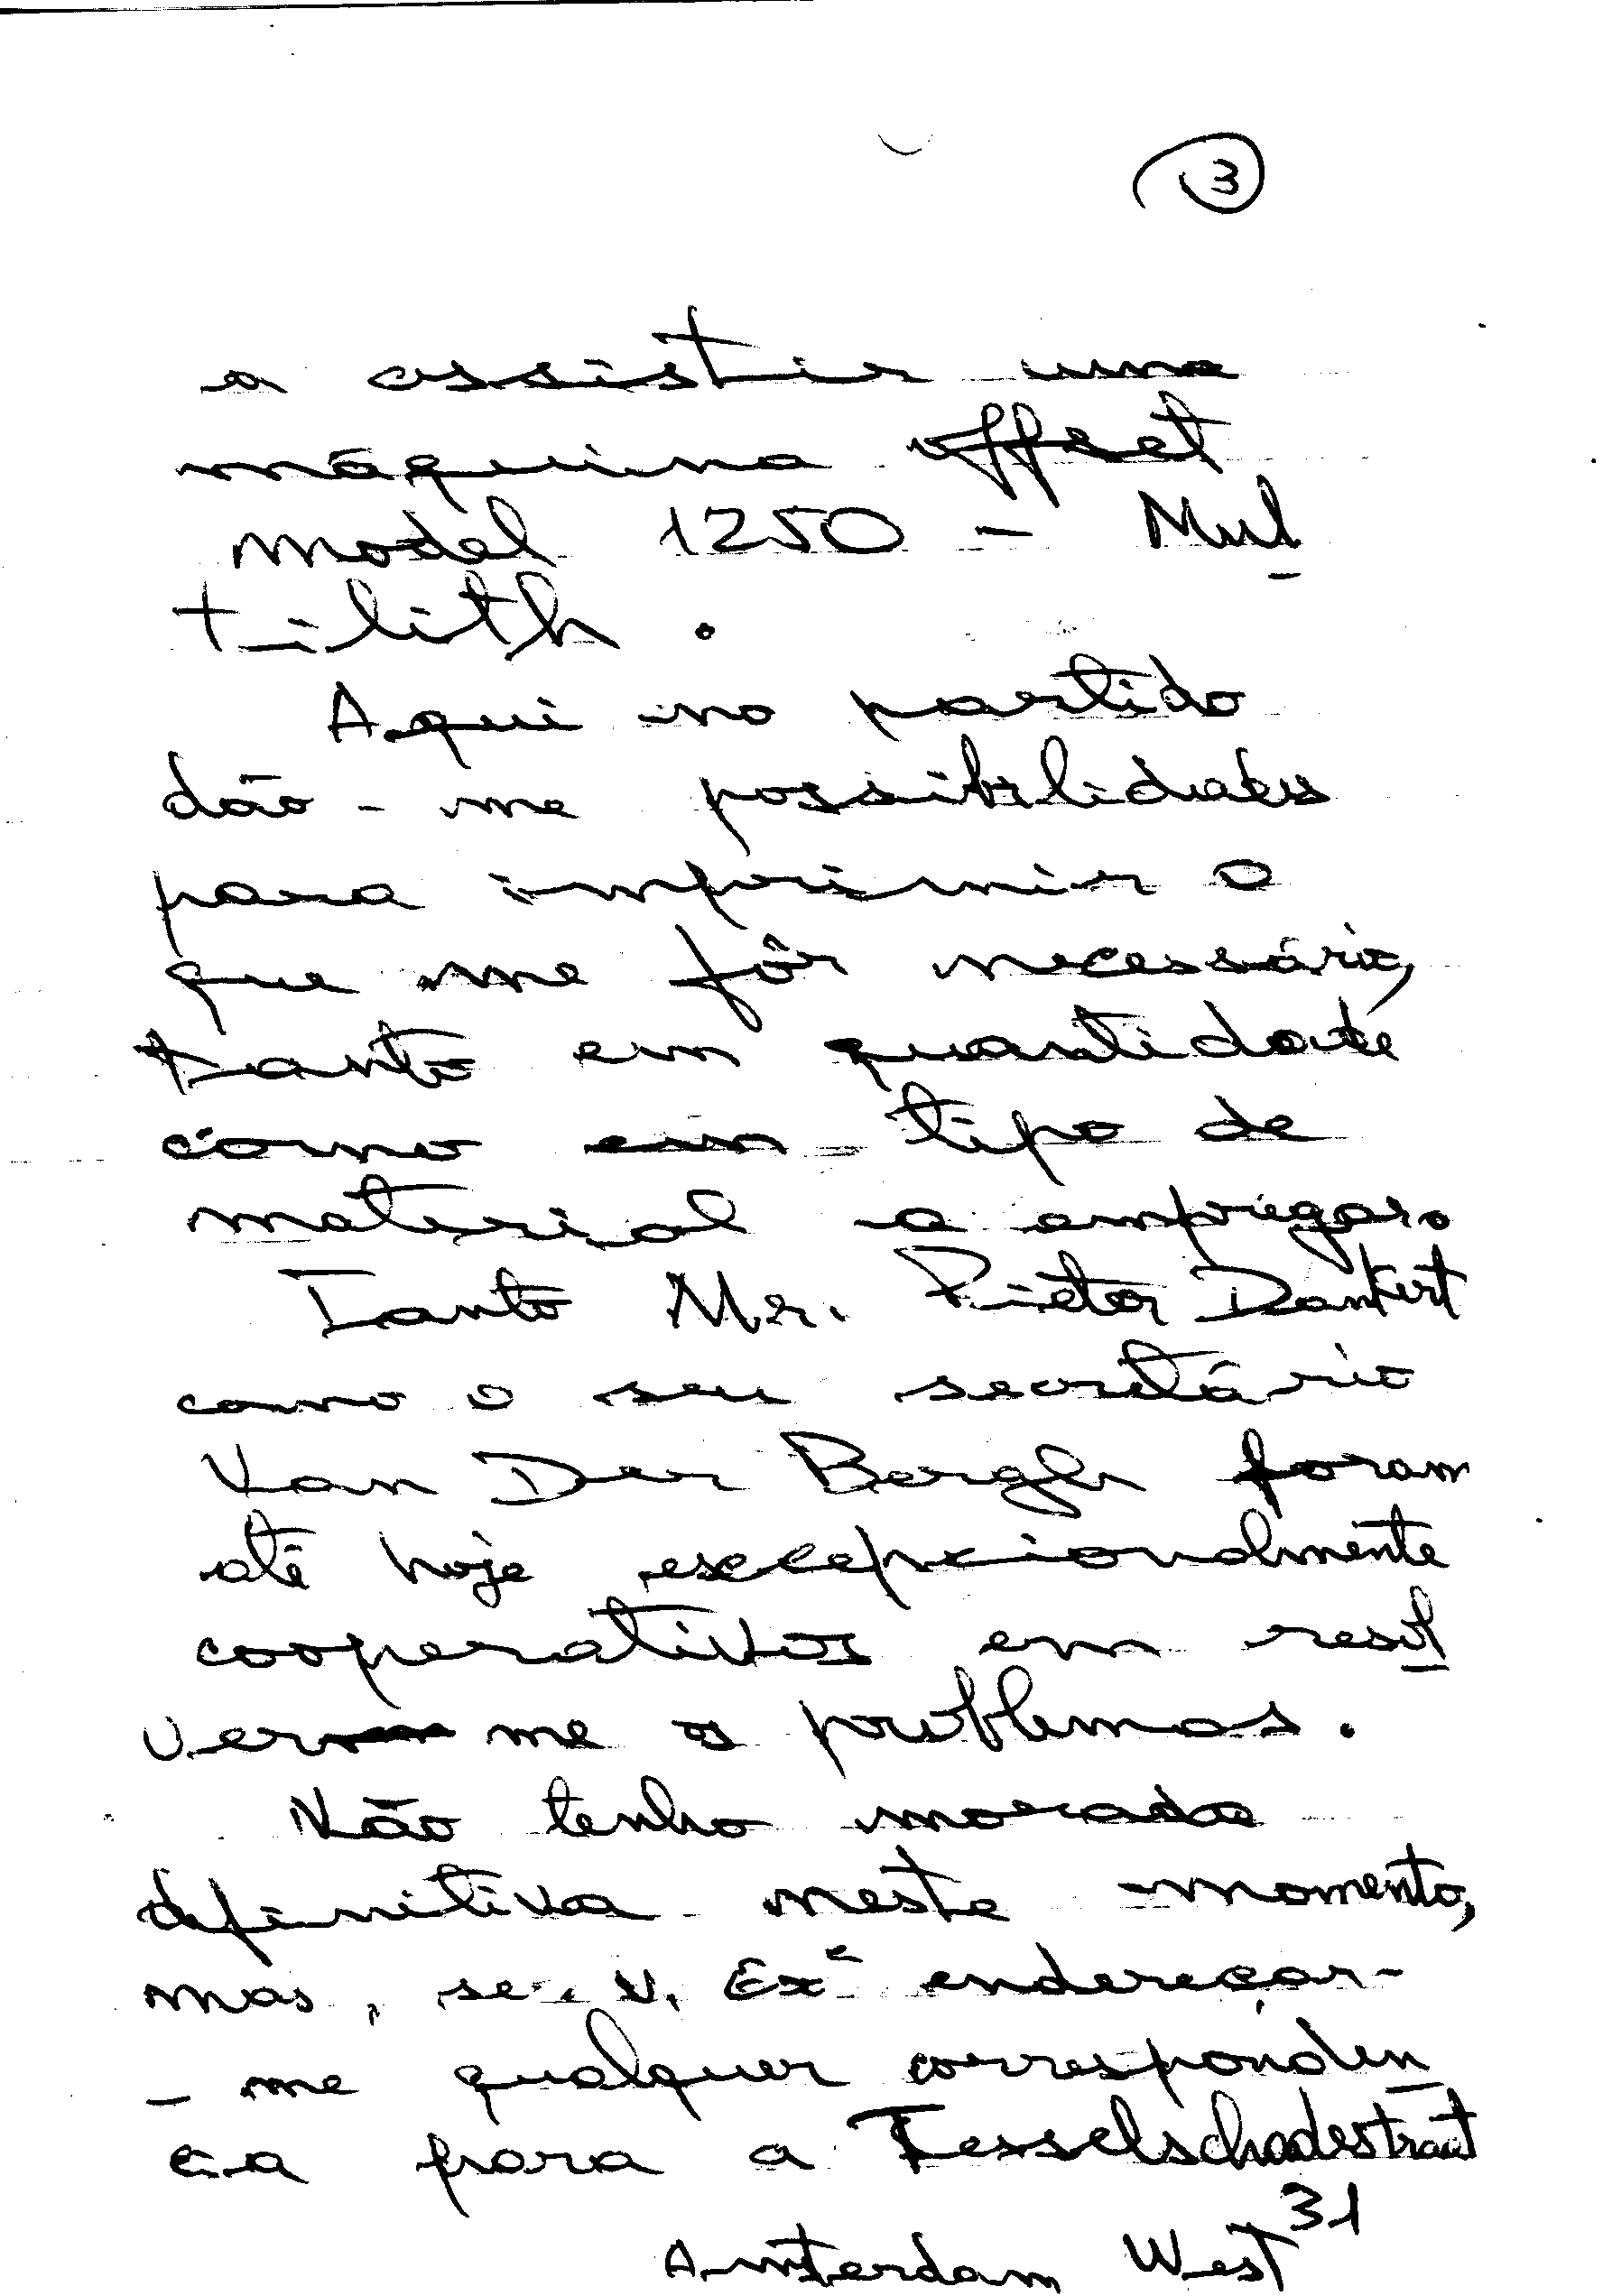 3
a assistir uma
máquina offset
model 1250 - Mul
tilith.
Aqui no partido
dão-me possibilidades
para imprimir o
que me fôr necessário,
tanto em quantidade
como em tipo de
material a empregar.
Tanto Mr. Pieter Dankert
como o seu secretário
Van Der Bergh foram
até hoje escepcionalmente
cooperativos em resol
verem-me os problemas.
Não tenho morada
definitiva neste momento,
mas, se V. Exª endereçar-
-me qualquer corresponden
cia para a Tesselschadestraat
31
Amsterdam West